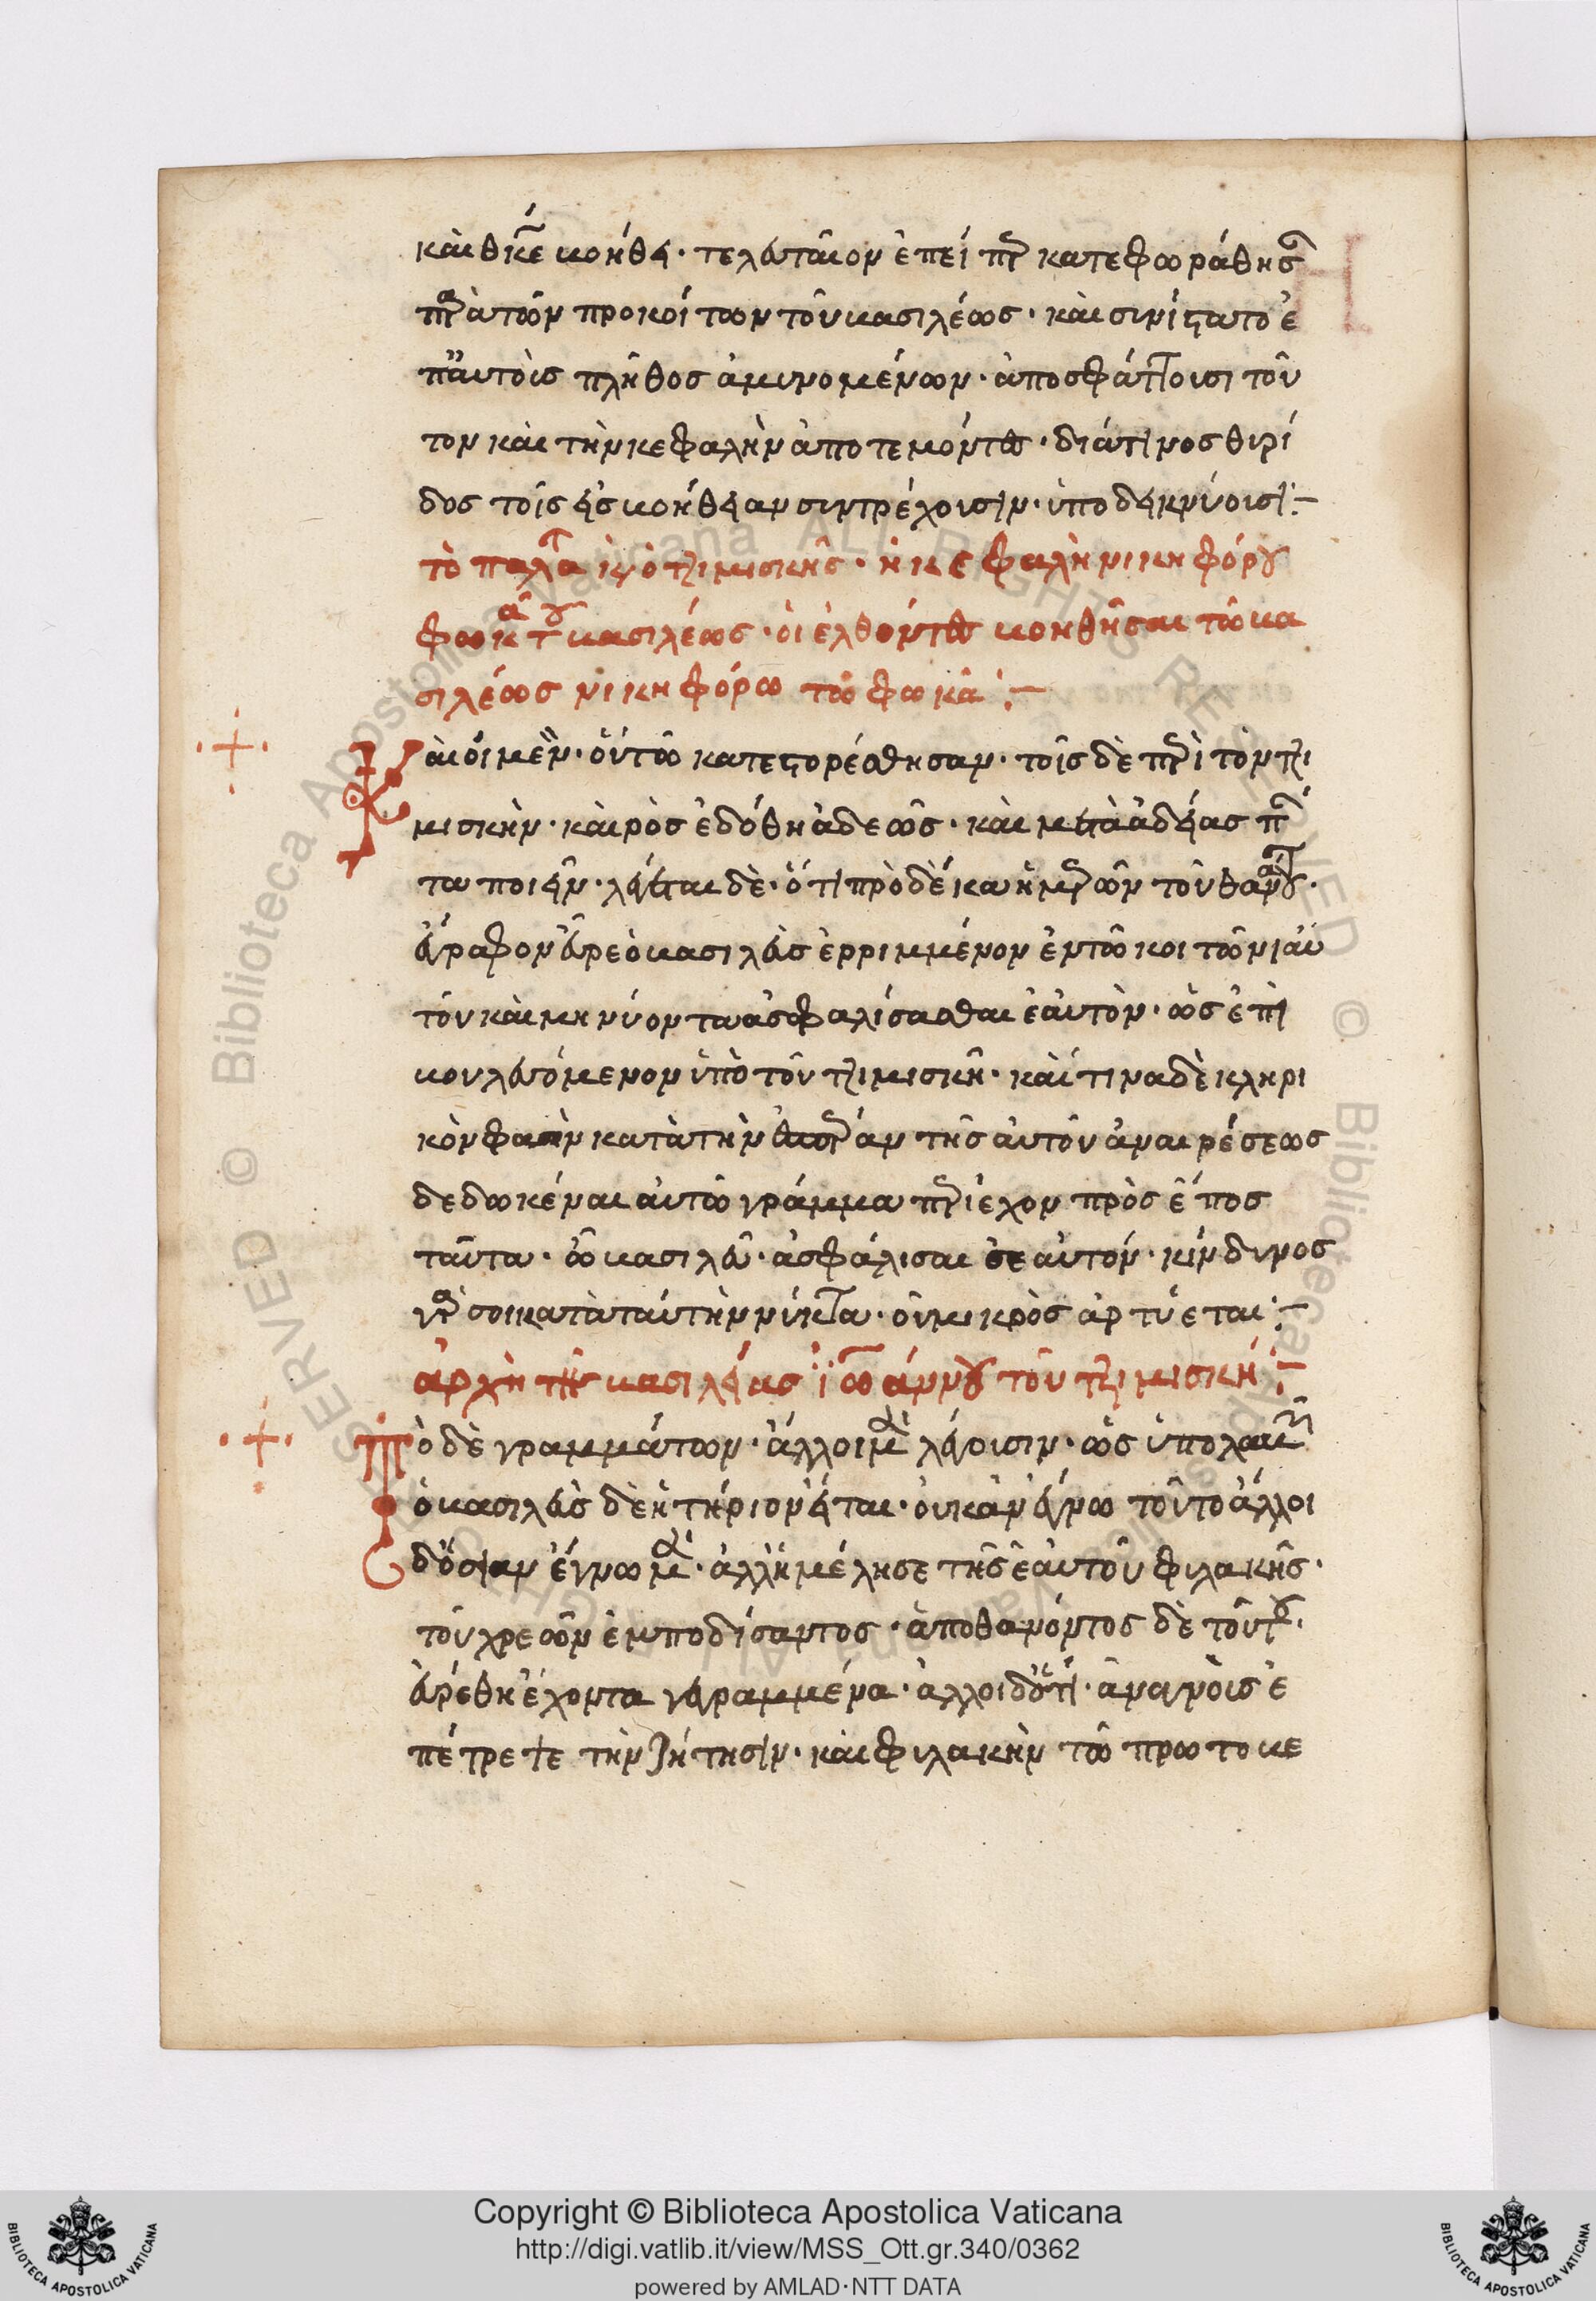 καὶ θεὲ βοήθει· τελευταῖον ἐπεὶ περ κατεφωράθησαν
παρὰ τῶν προκοίτων τοῦ βασιλέως· καὶ συνίστατο ἐ
π αὐτοῖς πλῆθος ἀμυνομένων· ἀποσφάττουσι τοῦ
τον καὶ τὴν κεφαλὴν ἀποτεμόντες· διά τινος θυρί
δος τοῖς εἰς βοήθειαν συντρέχουσιν· ὑποδεικνύουσι:–
τὸ παλάτι ὁ τζιμισκῆς· ἡ κεφαλὴ νικηφόρου
φωκᾶ τοῦ βασιλέως· οἱ ἐλθόντες βοηθῆσαι τῶ βα
σιλέως νικηφόρω τῶ φωκᾶ:–
Καὶ οἱ μὲν· οὕτω κατεστορέσθησαν· τοῖς δὲ περὶ τὸν τζι
μισκὴν· καιρὸς ἐδόθη ἀδεῶς· καὶ μετὰ ἀδείας πάν
τα ποιεῖν· λέγεται δὲ· ὅτι πρὸ δέκα ἡμερῶν τοῦ θανάτου·
ἔγγραφον εὗρε ὁ βασιλεὺς ἐρριμμένον ἐν τῶ κοιτῶνι αὐ
τοῦ καὶ μηνύοντα ἀσφαλίσασθαι ἑαυτὸν· ὡς ἐπι
βουλευόμενον ὑπὸ τοῦ τζιμισκῆ· καί τινα δὲ κληρι
κὸν φασὶν κατὰ τὴν ἑσπέραν τῆς αὐτοῦ ἀναιρέσεως
δεδωκέναι αὐτῶ γράμμα περιέχον πρὸς ἔπος
ταῦτα· ὦ βασιλεῦ· ἀσφάλισαι σεαυτόν· κίνδυνος
γάρ σοι κατὰ ταύτην νύκτα· οὐ μικρὸς ἀρτύεται:–
ἀρχὴ τῆς βασιλείας ἰωάννου τοῦ τζιμισκή:–
Τὸ δὲ γραμμάτων· ἄλλοι μὲν λέγουσιν· ὡς ὑπολαβὼν
ὁ βασιλεὺς δεητήριον εἶναι· οὐκ ἀνέγνω τοῦτο ἄλλοι
δ ὅσιαν ἔγνω μὲν· ἀλλ ἠμέλησε τῆς ἑαυτοῦ φυλακῆς·
τοῦ χρεὼν ἐμποδίσαντος· ἀποθανόντος δὲ τούτου·
εὑρέθη ἔχοντα γεγραμμένα· ἄλλοι δ ὅτι· ἀναγνοὺς ἐ
πέτρεψε τὴν ζήτησιν· καὶ φυλακὴν τῶ πρωτοβε